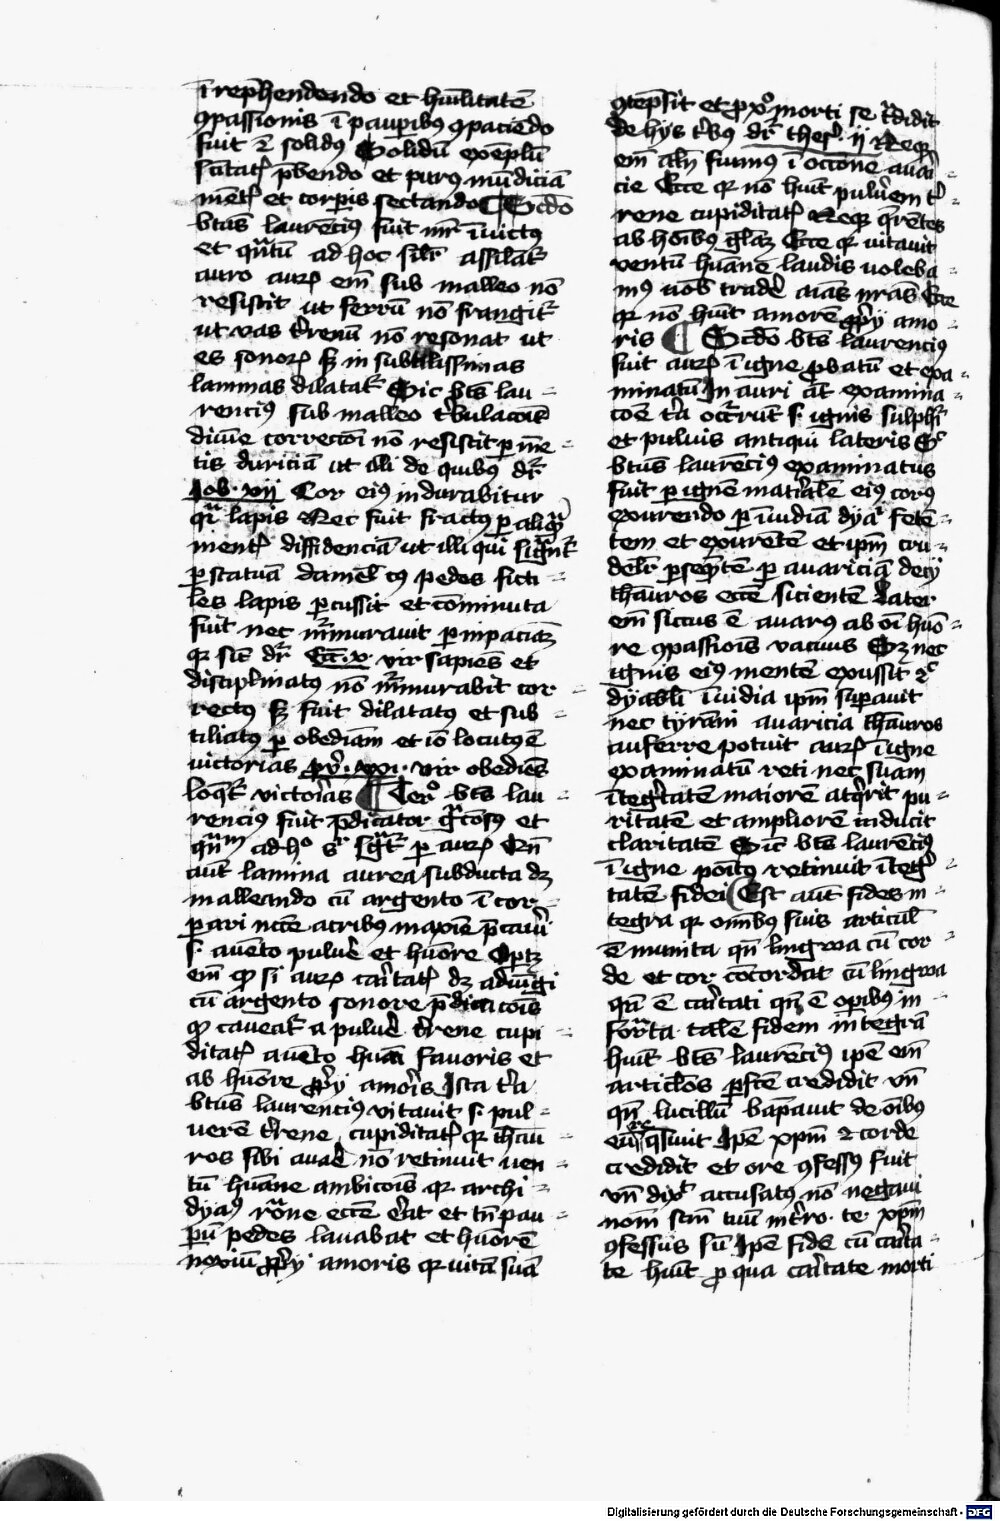 i rephendendo et hūilitatē
ꝯpassionis ī paupibus ꝯpaciēdo
fuit ⁊ solidus Solidū exēplū
scītatꝭ p̄bendo et purus mūdiciā
mētꝭ et corpis sectando ¶ Scdo
btūs laurēcius fuit m̄r īuictus
et qͣtū ad hoc silr assilatᷣ
auro aurꝫ em̄ sub malleo nō
resistit ut ferrū nō frangitᷣ
ut vas t̄renū nō resonat ut
es sonorꝫ sꝫ in subtilissimas
laminas dilatatᷣ Sic bts̄ lau-
rencius sub malleo tͥbulacōis
diuīe correctōi nō resistit ꝑ mē-
tis duriciā ut illi de quibus drᷣ
Job · xij Cor eius indurabitur
qͣi lapis Nec fuit fractus ꝑ aliqͣ
mentꝭ diffidenciā ut illi qui signātᷣ
ꝑ statuā daniel cuius pedes ficti-
les lapis ꝑcussit et cōminuta
fuit nec m̄murauit ꝑ inpaciēciā
qꝛ sic̄ drᷣ Ecc · x · vir sapiēs et
disciplinatus nō m̄murabit cor-
rectus sꝫ fuit dilatatus et sub-
tiliatus ꝑ obediam et iō locutus ē
victorias pry · xxi · vir obediēs
loqͣtᷣ victorias ¶ Tercͦ bts̄ lau-
rencius fuit p̄dicator gͣciosus et
qͣntum ad hͦ sr̄ sigͣtᷣ ꝑ aurꝫ Cum
aut̄ lamina aurea subducta dꝫ
malleando cū argento ī cor-
ꝑari nctē acribus maxīe p̄cauēri
s. a vento puluē et hūore Optꝫ
em̄ ꝙ si aurꝫ caritatꝭ dꝫ adiūgi
cū argento sonore p̄dicacōis
ꝙ caueatᷣ a puluē t̄rene cupi-
ditatꝭ a vēto hūani fauoris et
ab hūore ꝓprij amoris Ista tͥa
btūs laurencius vitauit s. pul-
uerē t̄rene cupiditatꝭ qꝛ thau-
ros sibi auaē nō retinuit uen-
tū hūane ambicōis qꝛ archi-
dyaꝯ rōne eccē erat et tn̄ pau-
ꝑū pedes lauabat et hūorē
noxiū ꝓprij amoris qꝛ uitā suā
ꝯtēpsit et ꝓ xͦ morti se tͣdidit
de hijs tͥbus drᷣ thes. ij Neqꝫ
em̄ aliqn̄ fuimus ī occōne auari-
cie Ecce qꝛ nō hūit puluēm t̄-
rene cupiditatꝭ Neqꝫ qrētes
ab hoībus glaꝫ Ecce qꝛ uitauit
ventū hūane laudis uoleba-
mus uob tradē aīas nr̄as Ecce
qꝛ nō hūit amorē ꝓprij amo
ris ¶ Scdo bts̄ laurencius
fuit aurꝫ ī igne ꝓbatū et exa-
minatū In auri aūt examina-
cōe tͥa occͣrūt s. ignis sulphꝰ
et puluis antiqui lateris Sic
btūs laurēcius examinatus
fuit ꝑ ignē matͥalē eius corꝰ
exurendo ꝑ īuidiā dyaꝭ fetē-
tem et exurētē et ipm̄ cru-
deliꝭ ꝑseq̄tē ꝑ auariciā decij
thāuros eccē sicientē Later
em̄ siccus ē auarus ab oī hūo-
re ꝯpassiōis vacuus Sꝫ nec
ignis eius mentē exussit nc̄
dyabli īuidia ipm̄ suꝑauit
nec tyrāni auaricia thāuros
auferre potuit aurꝫ ī igne
examinatū retinec suam
ītegͥtatē maiorē atqͥrit pu-
ritatē et ampliorē inducit
claritatē Sic bts̄ laurēcius
ī igne poītus retinuit ītegͥ-
tatē fidei Est aūt fides in-
tegra qꝛ om̄ibus suis articul
ē munita qn̄ lingwa cū cor-
de et cor cōcordat cū lingwa
qn̄ ē caritati qn̄ ē oꝑibus in-
forͣta talē fidem integrā
hūit bts̄ laurēcius ipē em̄
articlōs ꝑfcē credidit vn̄
qn̄ lucillū bapzauit de oībus
eū qͥsiuit Ipē xpm̄ ⁊ corde
credidit et ore ꝯfessus fuit
vn̄ dixͭ accusatus nō negaui
nom̄ scm̄ tuū int̄roᵗ te xpm̄
ꝯfessus sū Ipē fidē cū carita-
te hūit ꝓ qua caritate morti
Digitalisierung gefördert durch die Deutsche Forschungsgemeinschaft - DFG